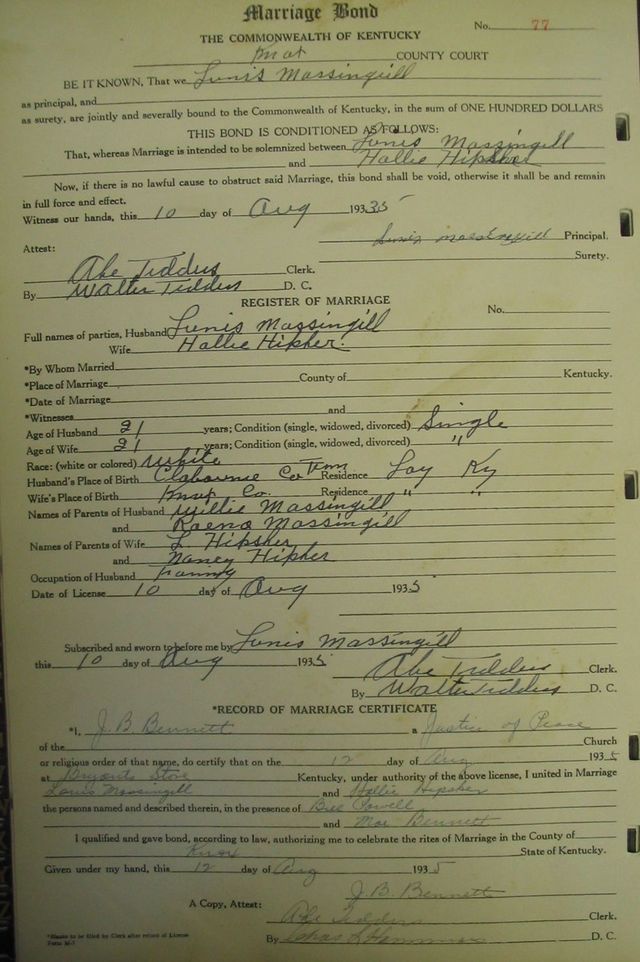 Marriage Bond
No. 77
THE COMMONWEALTH OF KENTUCKY
Knox COUNTY COURT
BE IT KNOWN, That we Lunis Massingill
as principal, and
as surety, are jointly and severally bound to the Commonwealth of Kentucky, in the sum of ONE HUNDRED DOLLARS
THIS BOND IS CONDITIONED AS FOLLOWS:
That, whereas Marriage is intended to be solemnized between Lunis Massingill
and Hallie Hipsher
Now, if there is no lawful cause to obstruct said Marriage, this bond shall be void, otherwise it shall be and remain
in full force and effect.
Witness our hands, this 10 day of Aug 193 35
Lunis Massingill Principal.
Surety.
Attest:
Abe Tedders Clerk.
By Walter Tedders D. C.
REGISTER OF MARRIAGE
No.
Full names of parties, Husband Lunis Massingill
Wife Hallie Hipsher.
*By Whom Married
*Place of Marriage County of Kentucky.
*Date of Marriage
*Witnesses and
Age of Husband 21 years; Condition (single, widowed, divorced) Single
Age of Wife 21 years; Condition (single, widowed, divorced) "
Race: (white or colored) White
Husband's Place of Birth Claborne Co Tenn Residence Lay Ky
Wife's Place of Birth Knox Co. Residence " "
Names of Parents of Husband Willie Massingill
and Massingill
Names of Parents of Wife L. Hipsher
and Nancy Hipsher
Occupation of Husband
Date of License 10 day of Aug 1935
Subscribed and sworn to before me by Lunis Massingill
this 10 day of Aug 1935
Abe Tedders Clerk.
By Walter Tedders D. C.
*RECORD OF MARRIAGE CERTIFICATE
*I, J. B. Bennett a Justice of Peace
of the Church
or religious order of that name, do certify that on the 12 day of Aug 1935
at Bryants Store Kentucky, under authority of the above license, I united in Marriage
Massingill and Hallie Hipsher
the persons named and described therein, in the presence of Powell
and Mae Bennett
I qualified and gave bond, according to law, authorizing me to celebrate the rites of Marriage in the County of
Knox State of Kentucky.
Given under my hand, this 12 day of Aug 1935
J. B. Bennett
A Copy, Attest:
Abe Tedders Clerk.
By D. C.
*Blanks to be filled by Clerk after return of License